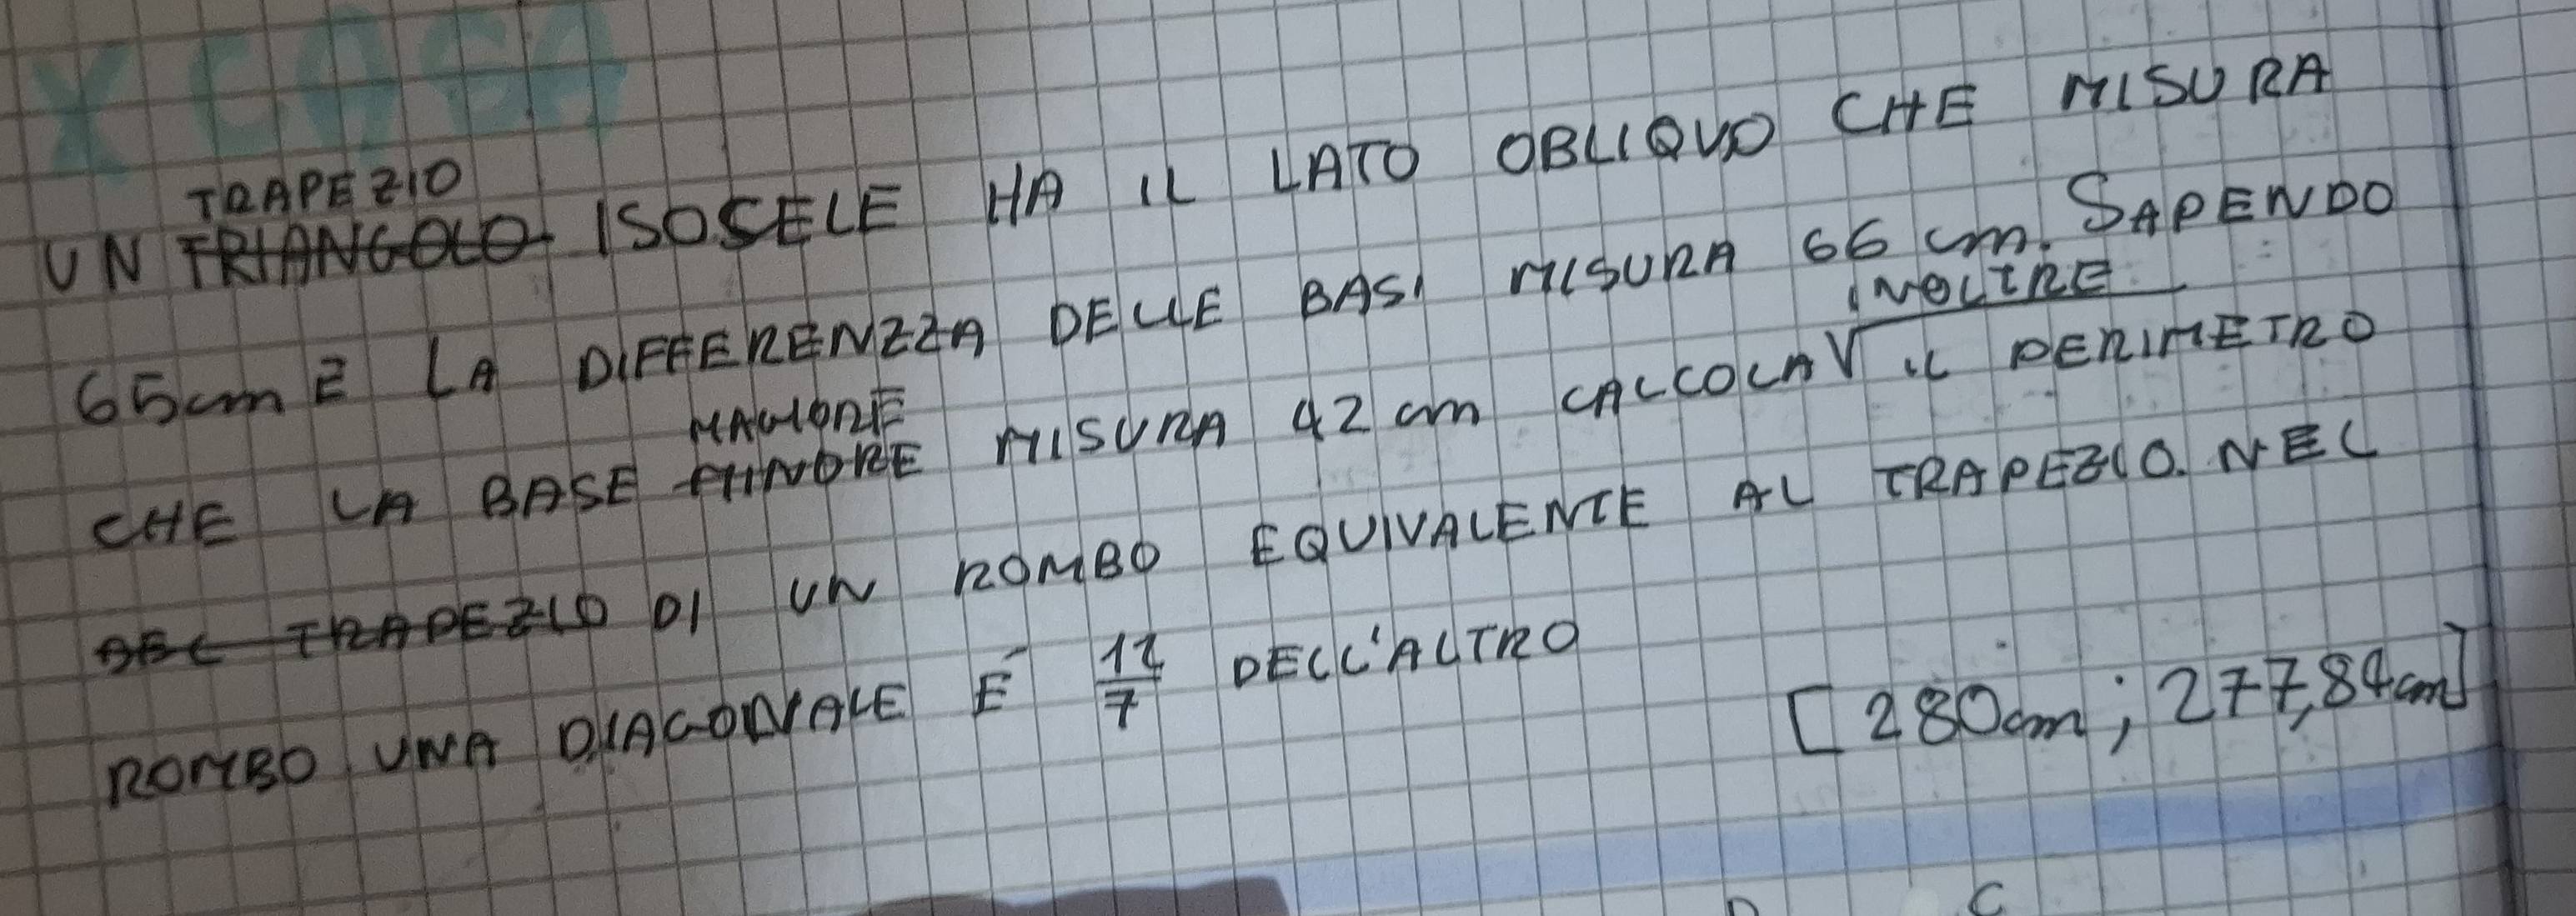 X CASA
TRAPEZIO
UN TRIANGOLO ISOSCELE HA IL LATO OBLIQUO CHE MISURA
65cm E LA DIFFERENZZA DELLE BASI MISURA 66 cm. SAPENDO
INOLTRE
MAGIORE
CHE LA BASE MINORE MISURA 42 cm CALCOLA IL PERIMETRO
DEL TRAPEZIO DI UN ROMBO EQUIVALENTE AL TRAPEZIO. NEL
ROMBO UNA DIAGONALE É 12/7 DELL'ALTRO
[280cm; 277,84cm]
D C